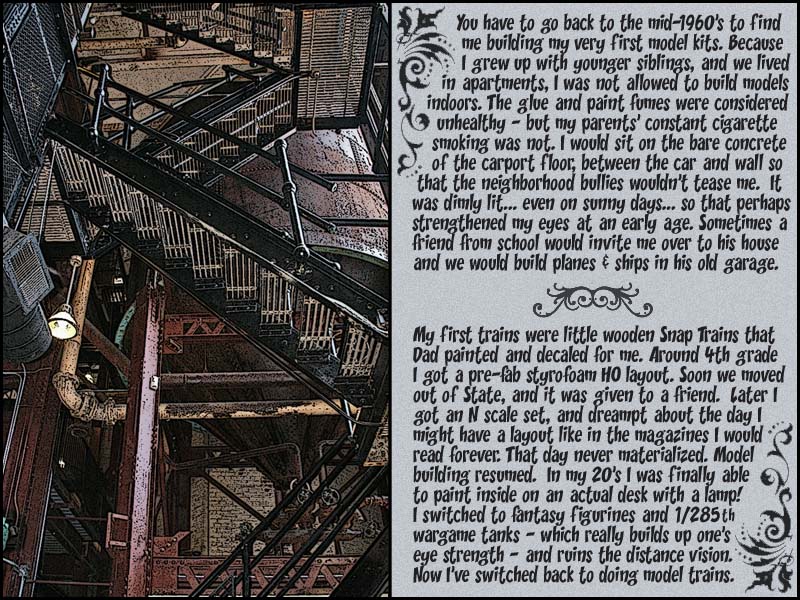 You have to go back to the mid-1960's to find
me building my very first model kits. Because
I grew up with younger siblings, and we lived
in apartments, I was not allowed to build models
indoors. The glue and paint fumes were considered
unhealthy - but my parents' constant cigarette
smoking was not. I would sit on the bare concrete
of the carport floor, between the car and wall so
that the neighborhood bullies wouldn't tease me. It
was dimly lit... even on sunny days... so that perhaps
strengthened my eyes at an early age. Sometimes a
friend from school would invite me over to his house
and we would build planes & ships in his old garage.
My first trains were little wooden Snap Trains that
Dad painted and decaled for me. Around 4th grade
I got a pre-fab styrofoam HO layout. Soon we moved
out of State, and it was given to a friend. Later I
got an N scale set, and dreampt about the day I
might have a layout like in the magazines I would
read forever. That day never materialized. Model
building resumed. In my 20's I was finally able
to paint inside on an actual desk with a lamp!
I switched to fantasy figurines and 1/285th
wargame tanks - which really builds up one's
eye strength - and ruins the distance vision.
Now I've switched back to doing model trains.